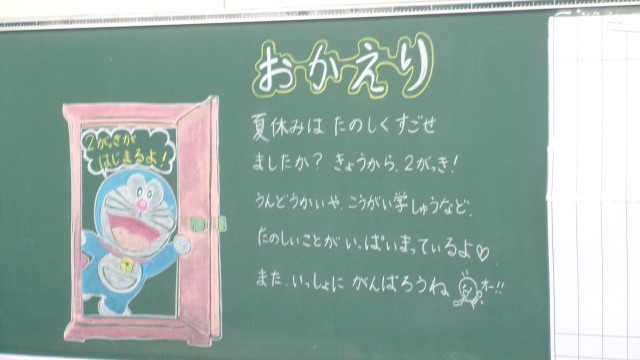 おかえり
2がっきが
はじまるよ!
夏休みは たのしくすごせ
ましたか? きょうから、2がっき!
うんどうかいや、こうがい学しゅうなど、
たのしいことが いっぱいまっているよ♡
また、いっしょに がんばろうね
オー!!